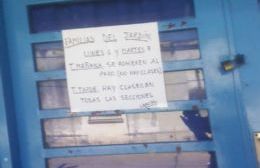 FAMILIAS DEL JARDÍN
LUNES 6 Y MARTES 7
T. MAÑANA SE ADHIEREN AL
PARO (NO HAY CLASES)
T. TARDE HAY CLASES EN
TODAS LAS SECCIONES